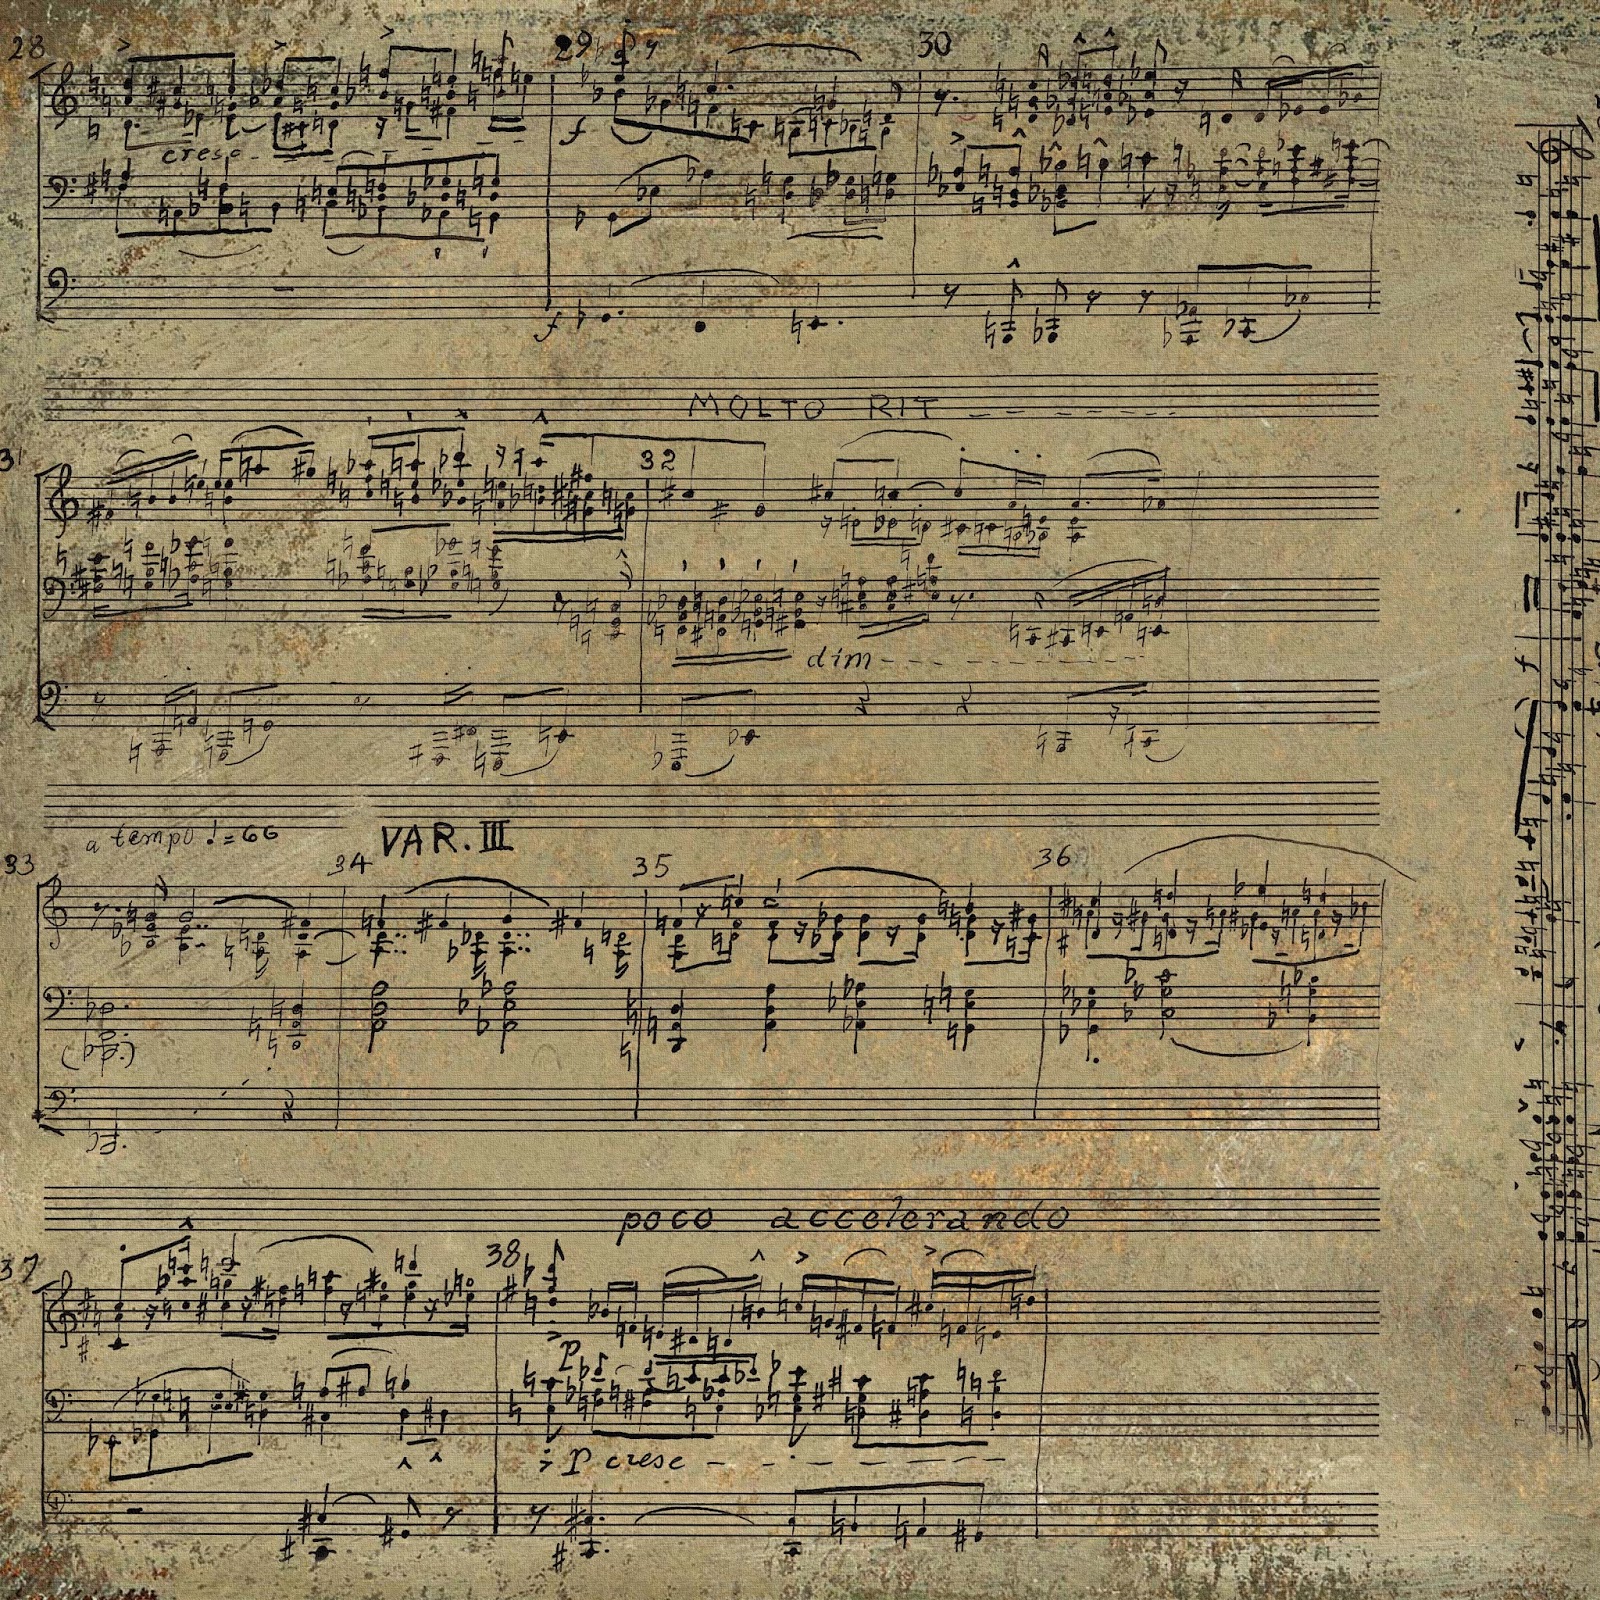 28 29 30
cresc
f
f
MOLTO RIT
31 32
dim
a tempo ♩=66 VAR. III
33 34 35 36
poco accelerando
37 38
p
p cresc
f